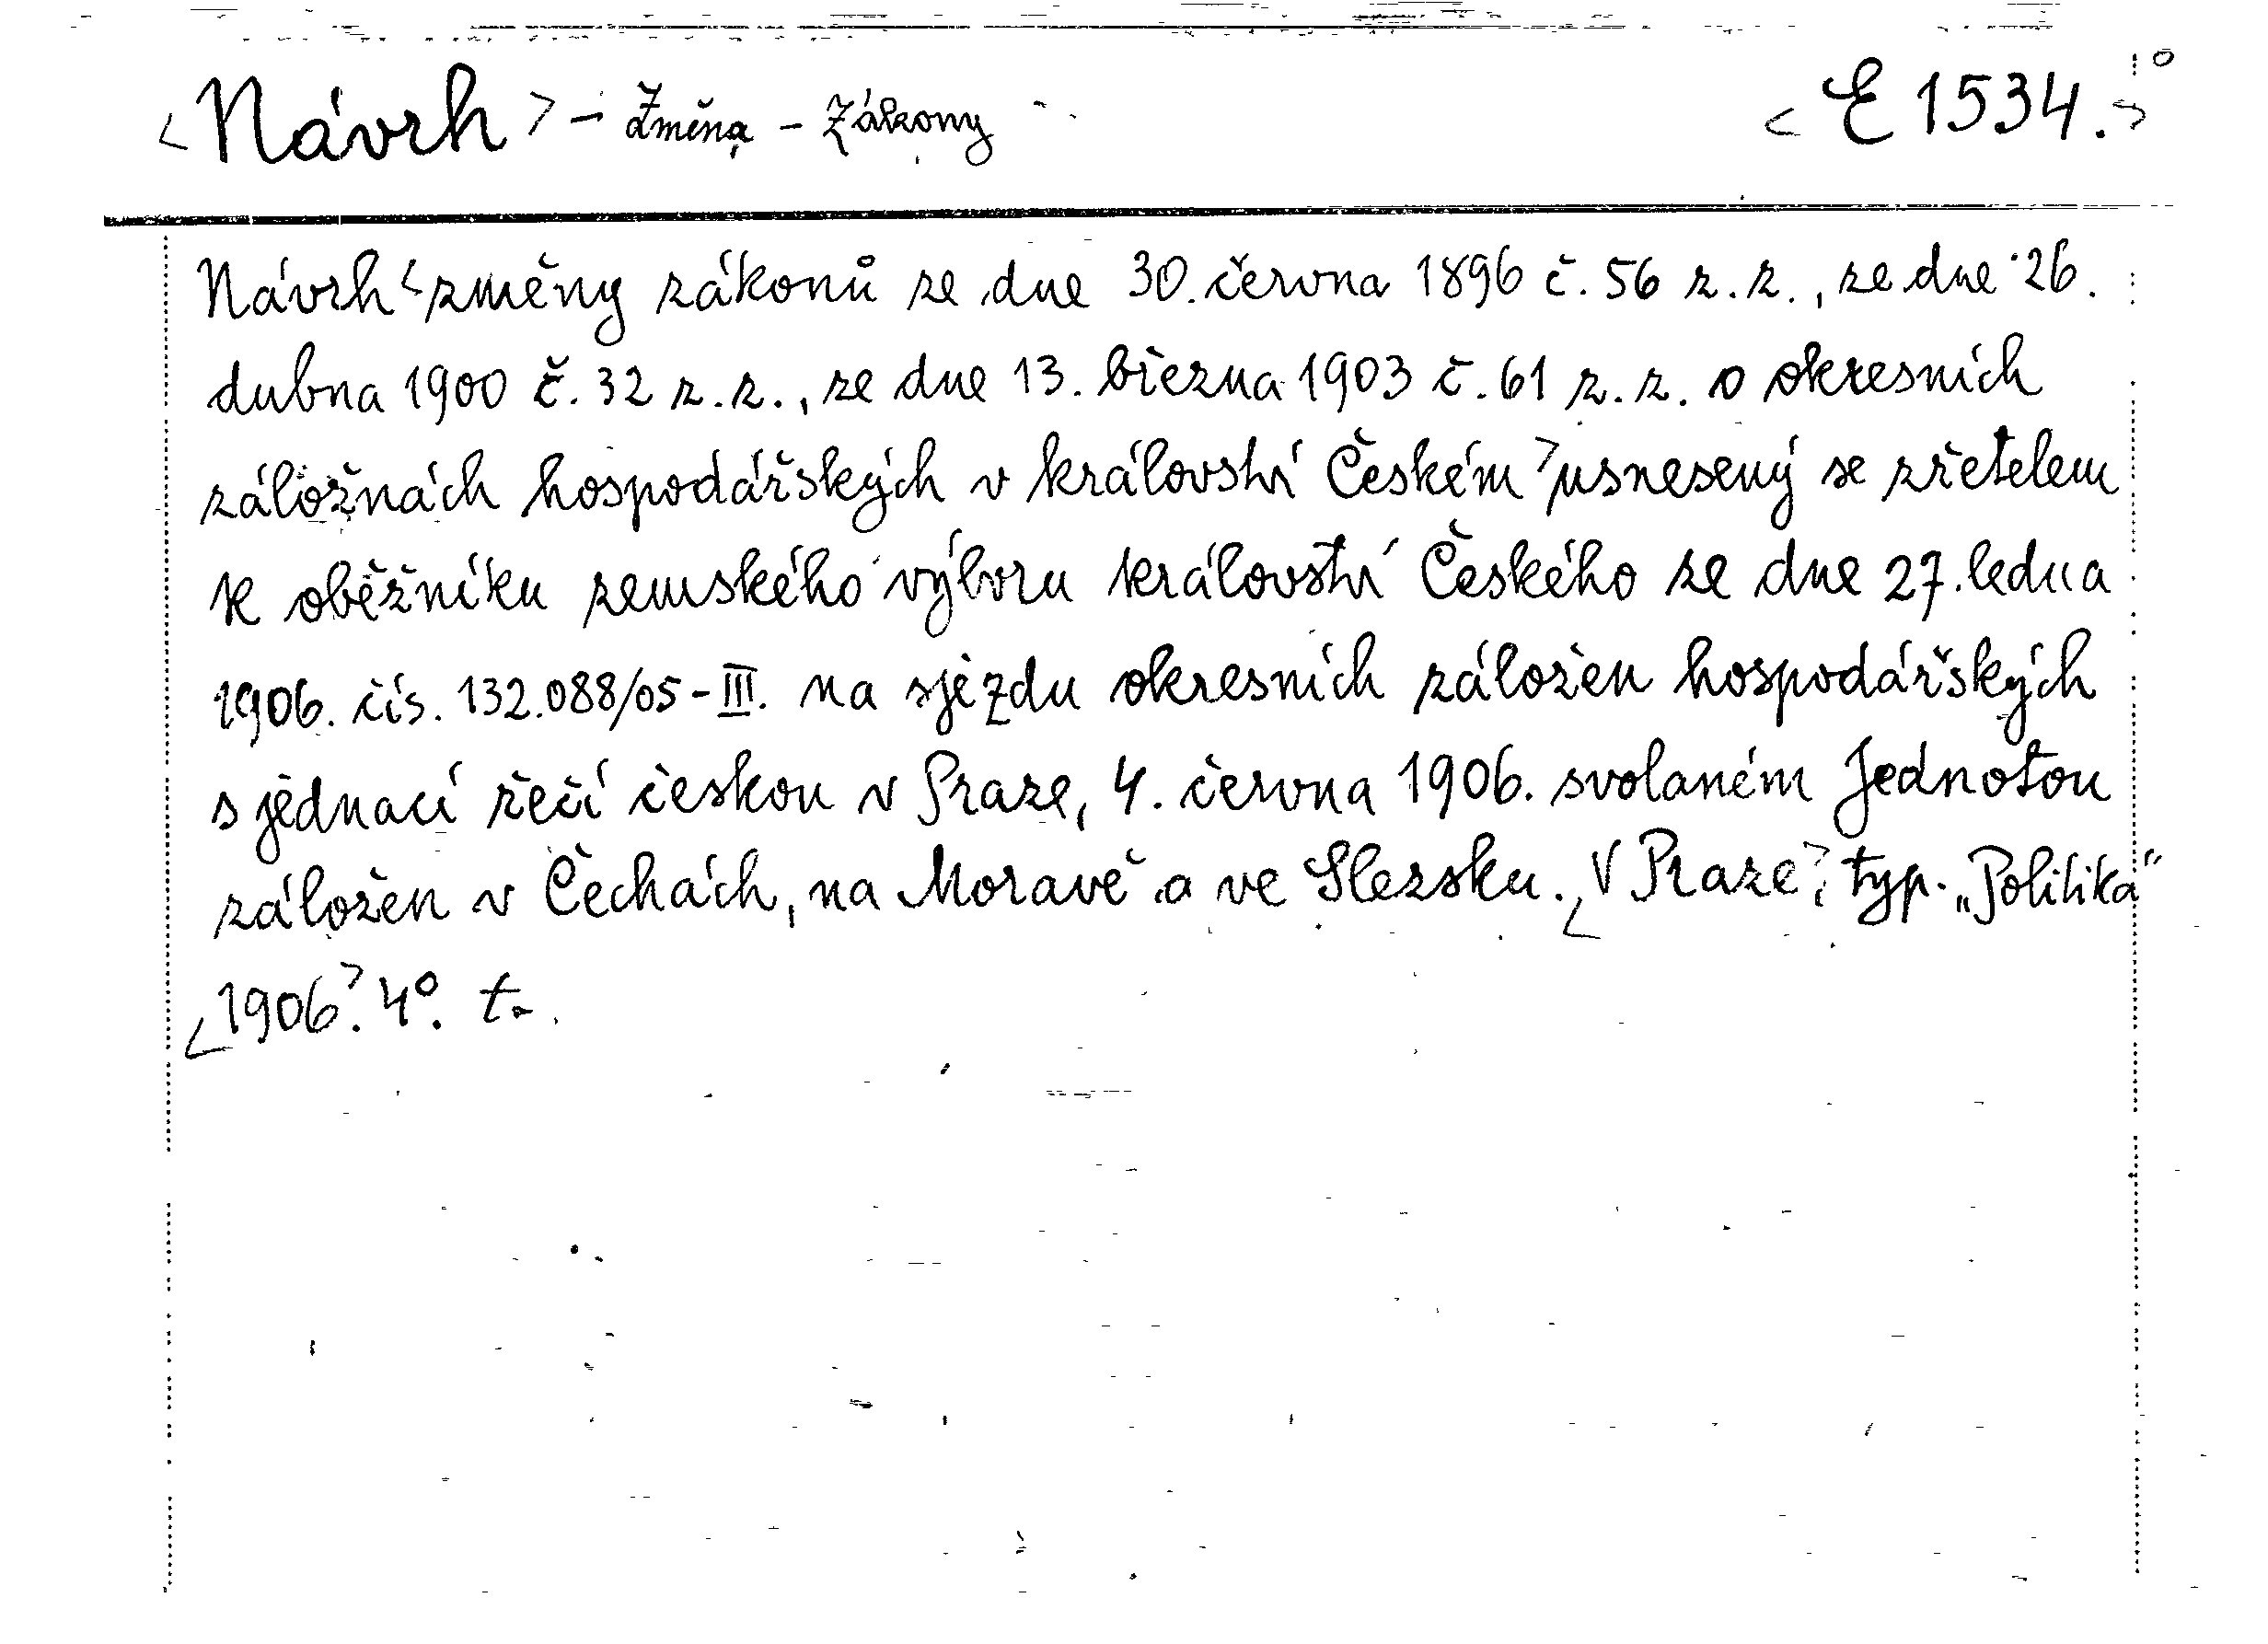 <Návrh> - Změna - Zákony <E 1534.>
Návrh <změny zákonů ze dne 30. června 1896 č. 56 z. z., ze dne 26.
dubna 1900 č. 32 z. z., ze dne 13. března 1903 č. 61 z. z. o okresních
záložnách hospodářských v království Českém> usnesený se zřetelem
k oběžníku zemského výboru království Českého ze dne 27. ledna
1906. čís. 132.088/05-III. na sjezdu okresních záložen hospodářských
s jednací řečí českou v Praze, 4. června 1906. svolaném Jednotou
záložen v Čechách, na Moravě a ve Slezsku. <V Praze>, typ. „Politika“
<1906>. 4°. t.